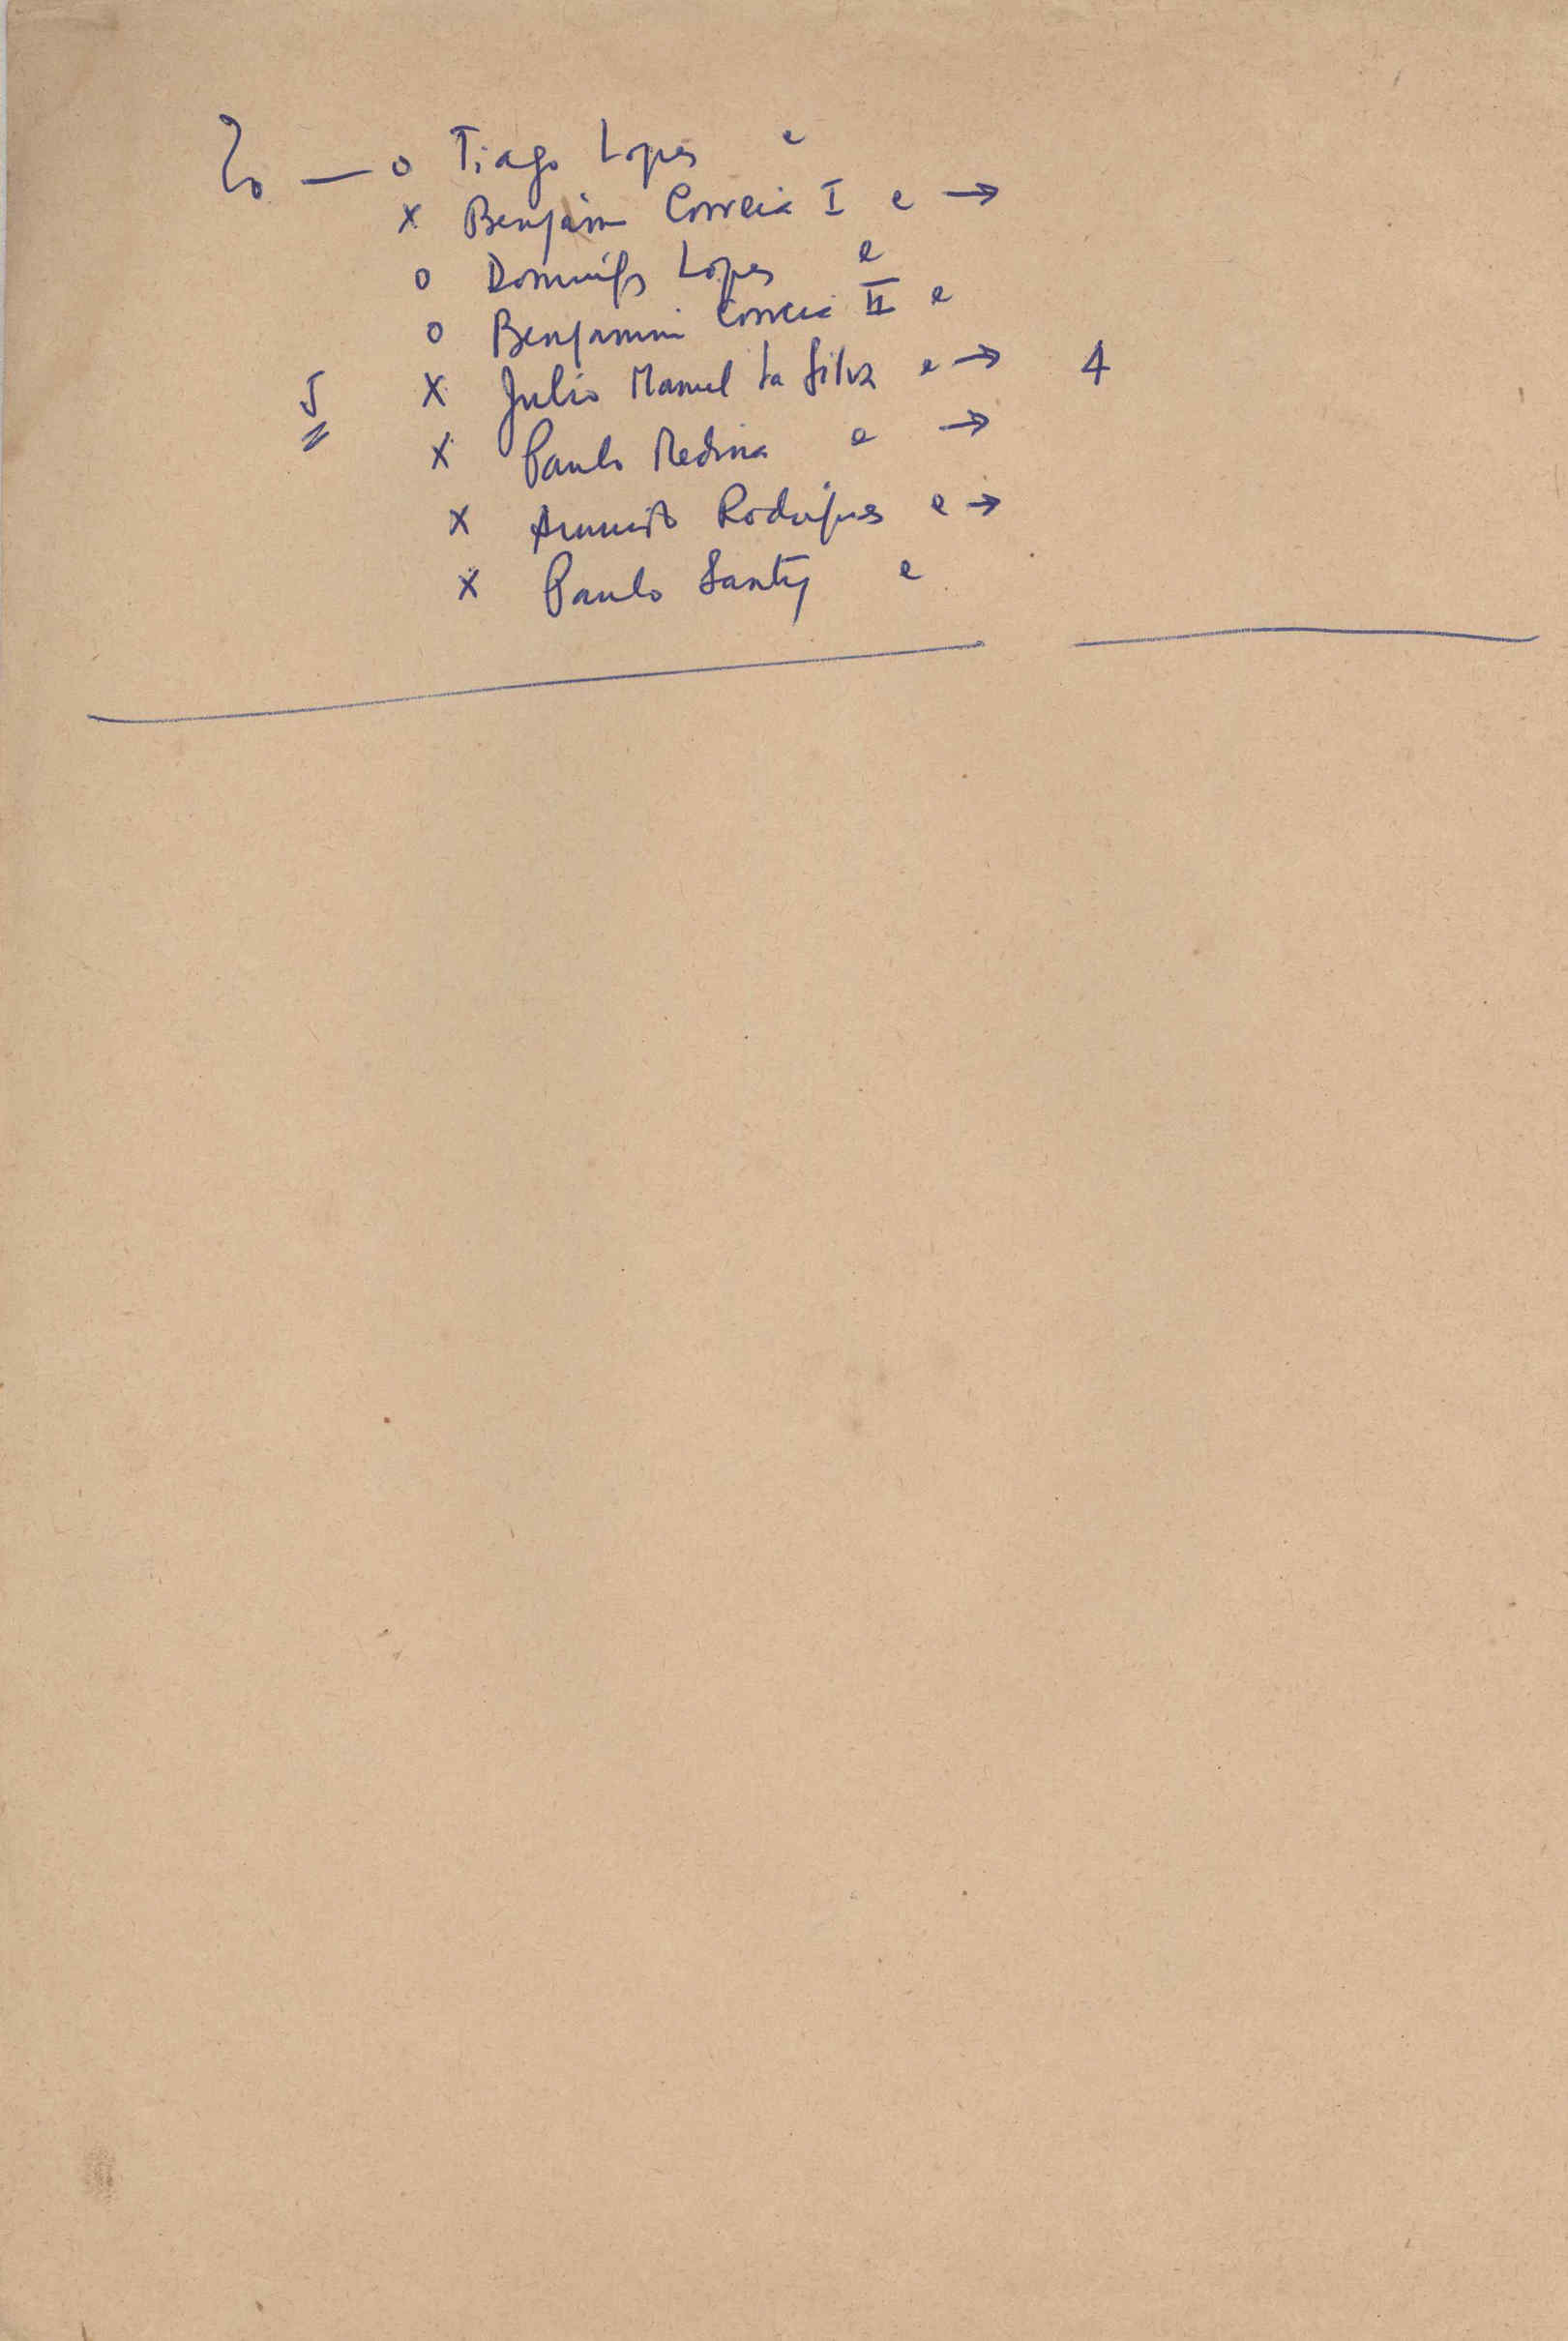 — o Tiago Lopes e
x Benjamin Correia I e →
o Domingos Lopes e
o Benjamim Correia II e
5 x Julio Manuel da Silva e → 4
x Paulo Medina e →
x Rodrigues e →
x Paulo Santy e